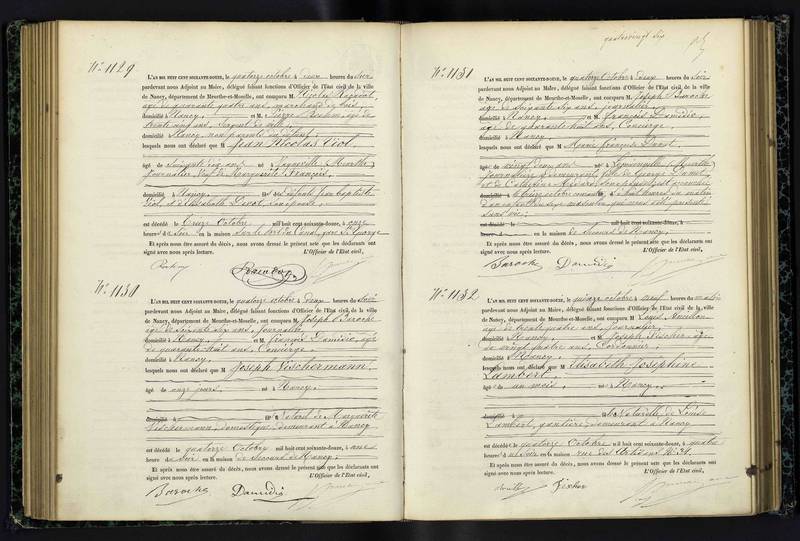 quatrevingt six
N° 1129
L'AN MIL HUIT CENT SOIXANTE-DOUZE, le quatorze octobre à deux heures du soir
pardevant nous Adjoint au Maire, délégué faisant fonctions d'Officier de l'Etat civil de la ville
de Nancy, département de Meurthe-et-Moselle, ont comparu M. Nicolas
âgé de quarante quatre ans, marchand de bois,
domicilié à Nancy, et M. Pierre âgé de
trente ans, Sergent de ville
domicilié à Nancy, non parents du défunt,
lesquels nous ont déclaré que M Jean Nicolas Viol
âgé de Soixante six ans né à (Meurthe)
journalier, Veuf de Marguerite François,
domicilié à Nancy, fils de défunts Jean Baptiste
Viol et d'Elisabeth son épouse,
est décédé le treize Octobre mil huit cent soixante-douze, à onze
heures du Soir en la maison sur le bord du Canal, près St George
Et après nous être assuré du décès, nous avons dressé le présent acte que les déclarants ont
signé avec nous après lecture. L'Officier de l'Etat civil,
N° 1130
L'AN MIL HUIT CENT SOIXANTE-DOUZE, le quatorze octobre à deux heures du soir
pardevant nous Adjoint au Maire, délégué faisant fonctions d'Officier de l'Etat civil de la ville
de Nancy, département de Meurthe-et-Moselle, ont comparu M. Joseph Baroche
âgé de soixante six ans, journalier
domicilié à Nancy, et M. François Damidio, âgé
de quarante huit ans, Concierge,
domicilié à Nancy,
lesquels nous ont déclaré que M Joseph Vischermann
âgé de onze jours, né à Nancy,
domicilié à fils naturel de Marguerite
Vischermann, domestique, demeurant à Nancy
est décédé le quatorze Octobre mil huit cent soixante-douze, à une
heure du soir en la maison de Secours de Nancy,
Et après nous être assuré du décès, nous avons dressé le présent acte que les déclarants ont
signé avec nous après lecture. L'Officier de l'Etat civil,
Baroche Damidio
N° 1131
L'AN MIL HUIT CENT SOIXANTE-DOUZE, le quatorze octobre à deux heures du soir
pardevant nous Adjoint au Maire, délégué faisant fonctions d'Officier de l'Etat civil de la ville
de Nancy, département de Meurthe-et-Moselle, ont comparu M. Joseph Baroche
âgé de soixante six ans, journalier,
domicilié à Nancy, et M. François Damidio,
âgé de quarante huit ans, Concierge,
domicilié à Nancy,
lesquels nous ont déclaré que M Marie Françoise
âgé de vingt deux ans né à (Meurthe)
journalière y demeurant, fille de George
et de Catherine est accouchée
le treize octobre à huit heures du matin
d'un enfant du sexe masculin, qui nous a été présenté
sans vie,
est décédé le mil huit cent soixante-douze, à
heure du en la maison de Secours de Nancy,
Et après nous être assuré du décès, nous avons dressé le présent acte que les déclarants ont
signé avec nous après lecture. L'Officier de l'Etat civil,
Baroche Damidio
N° 1132
L'AN MIL HUIT CENT SOIXANTE-DOUZE, le quinze octobre à neuf heures du matin
pardevant nous Adjoint au Maire, délégué faisant fonctions d'Officier de l'Etat civil de la ville
de Nancy, département de Meurthe-et-Moselle, ont comparu M. Louis
âgé de trente quatre ans, journalier,
domicilié à Nancy, et M. Joseph Vischer, âgé
de vingt quatre ans, Cordonnier,
domicilié à Nancy,
lesquels nous ont déclaré que M Elisabeth Joséphine
Lambert,
âgé de un mois, né à Nancy,
domicilié à fille naturelle de Louise
Lambert, gantière, demeurant à Nancy
est décédé le quatorze Octobre mil huit cent soixante-douze, à quatre
heures du Soir en la maison rue des Artisans N° 31,
Et après nous être assuré du décès, nous avons dressé le présent acte que les déclarants ont
signé avec nous après lecture. L'Officier de l'Etat civil,
Vischer